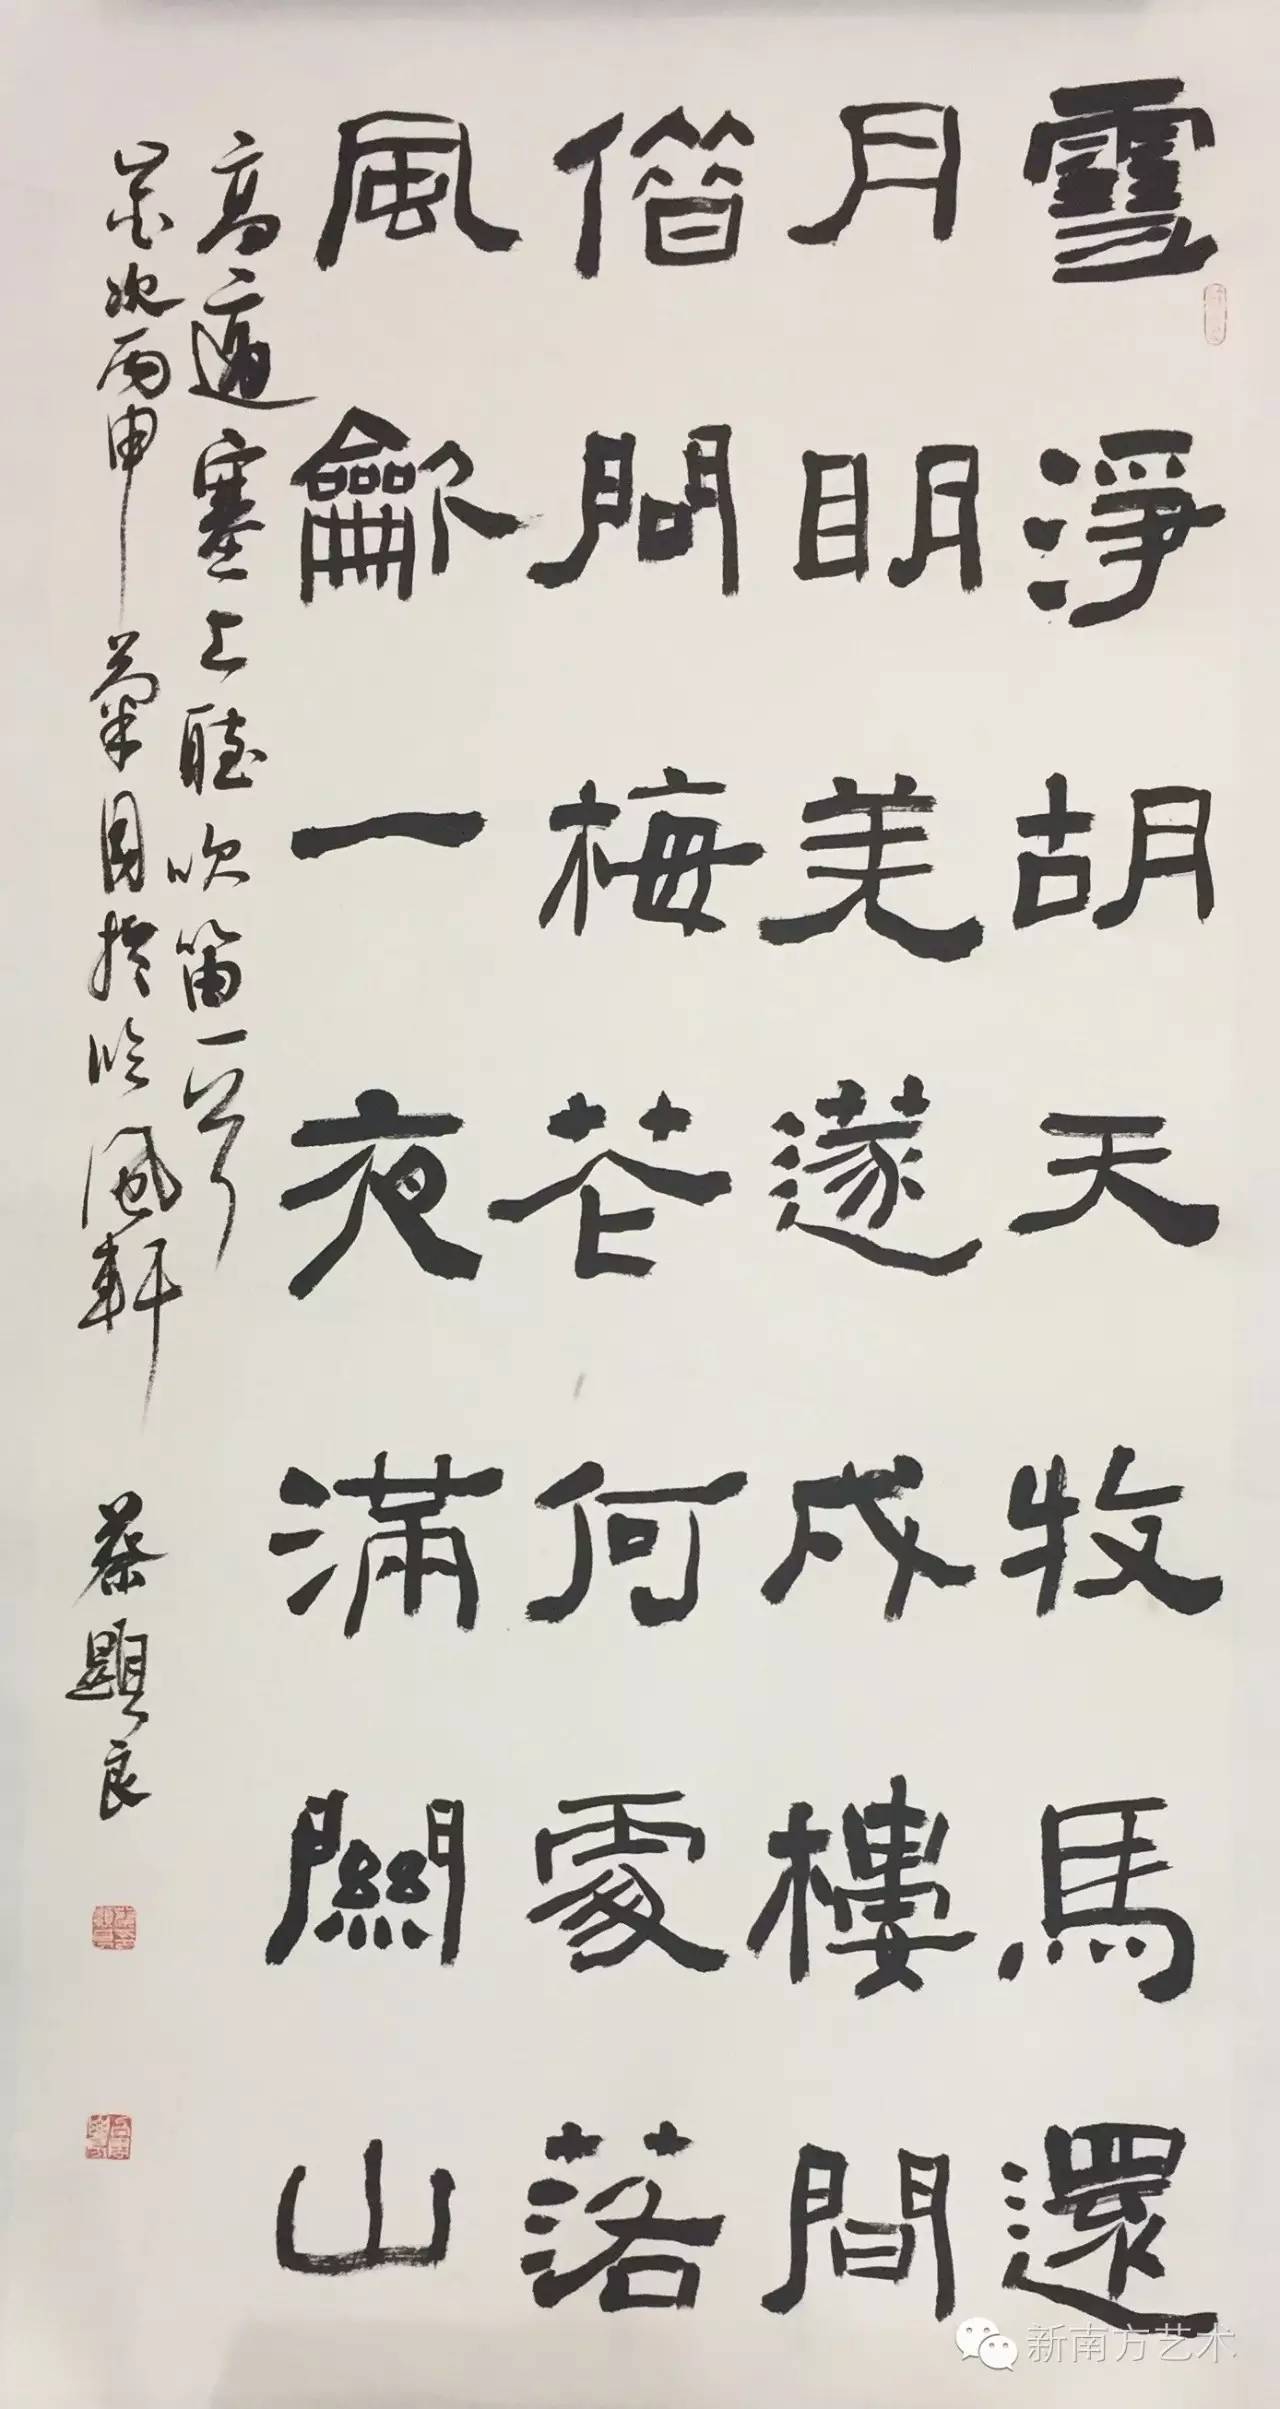 雪淨胡天牧馬還
月明羌篴戍樓間
借問梅花何處落
風龡一夜滿關山
高適塞上聽吹笛一首
歲次丙申菊月於風軒 蔡顯良
新南方艺术